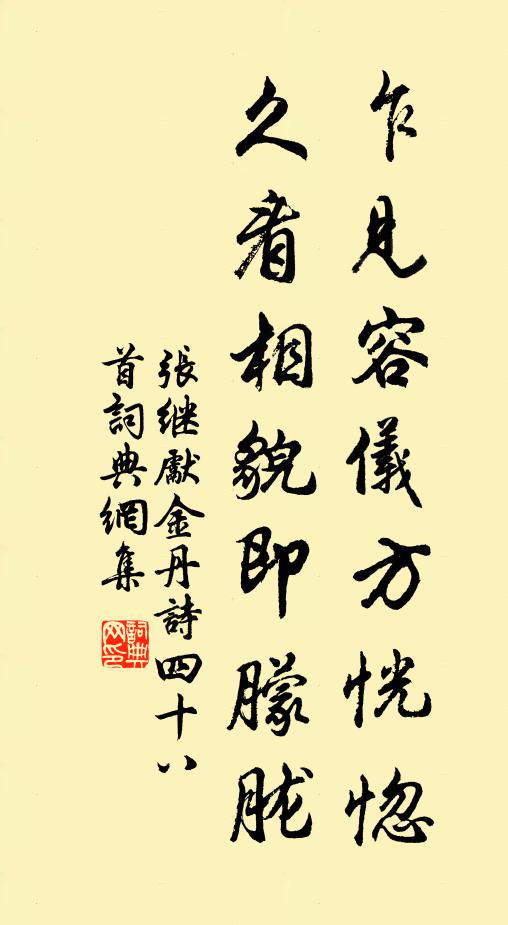 乍見容儀方恍惚
久看相貌即朦朧
張继獻金丹詩四十八
首詞典網集
詞典
网印